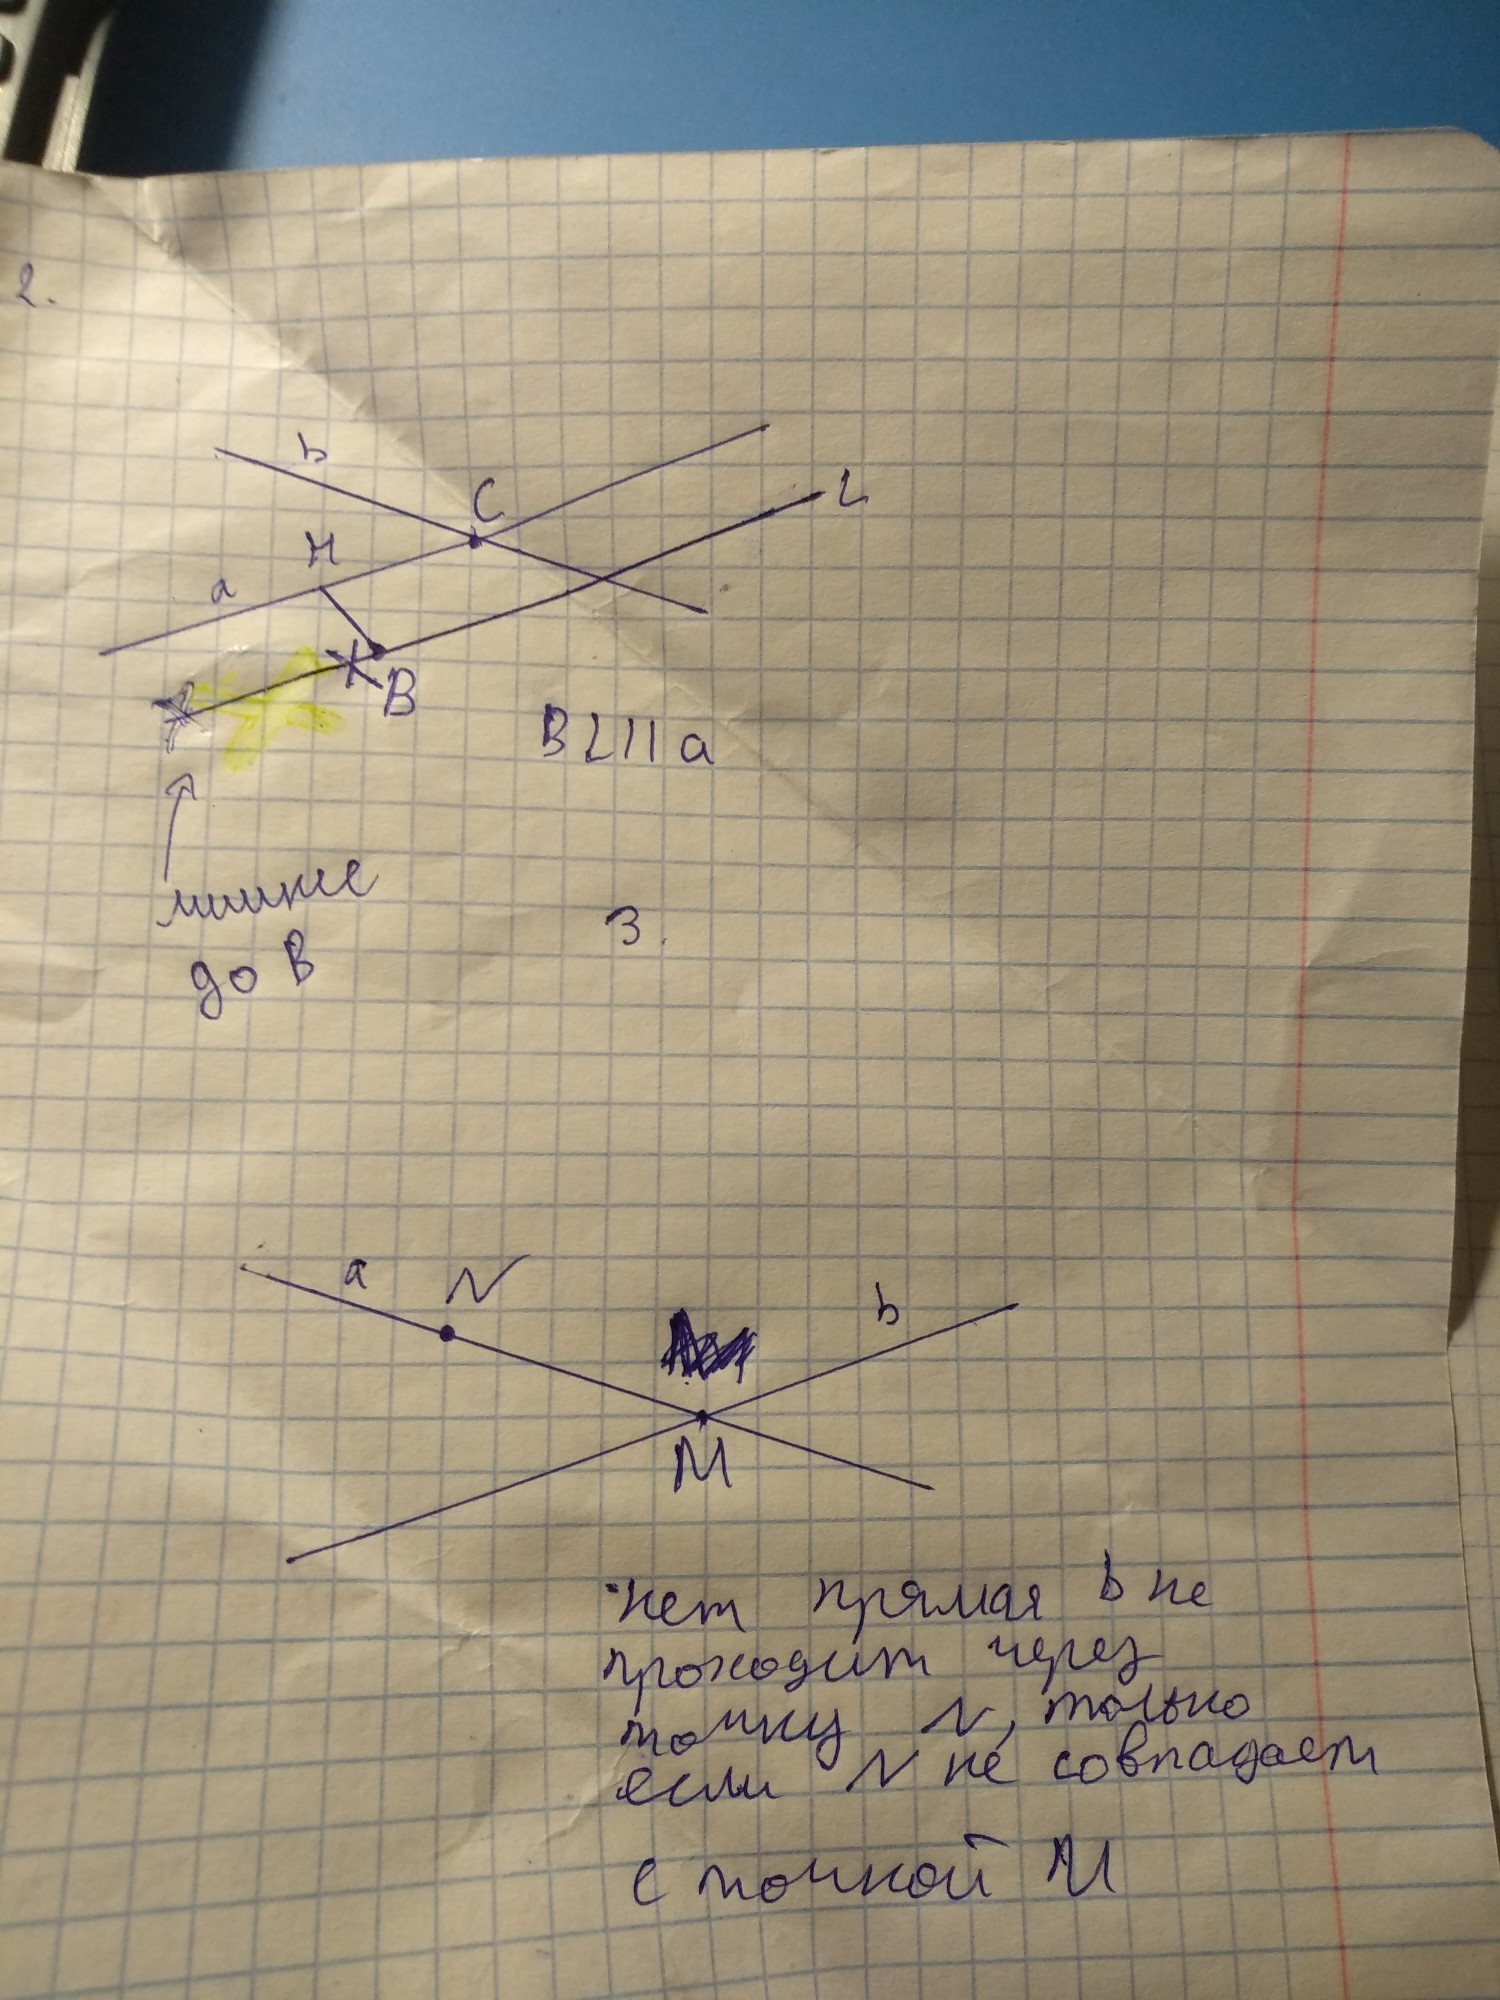 2.
b
C
L
H
a
B
BL || a
до B
3.
a
N
b
M
нет прямая b не
проходит через
точку N, только
если N не совпадает
с точкой M